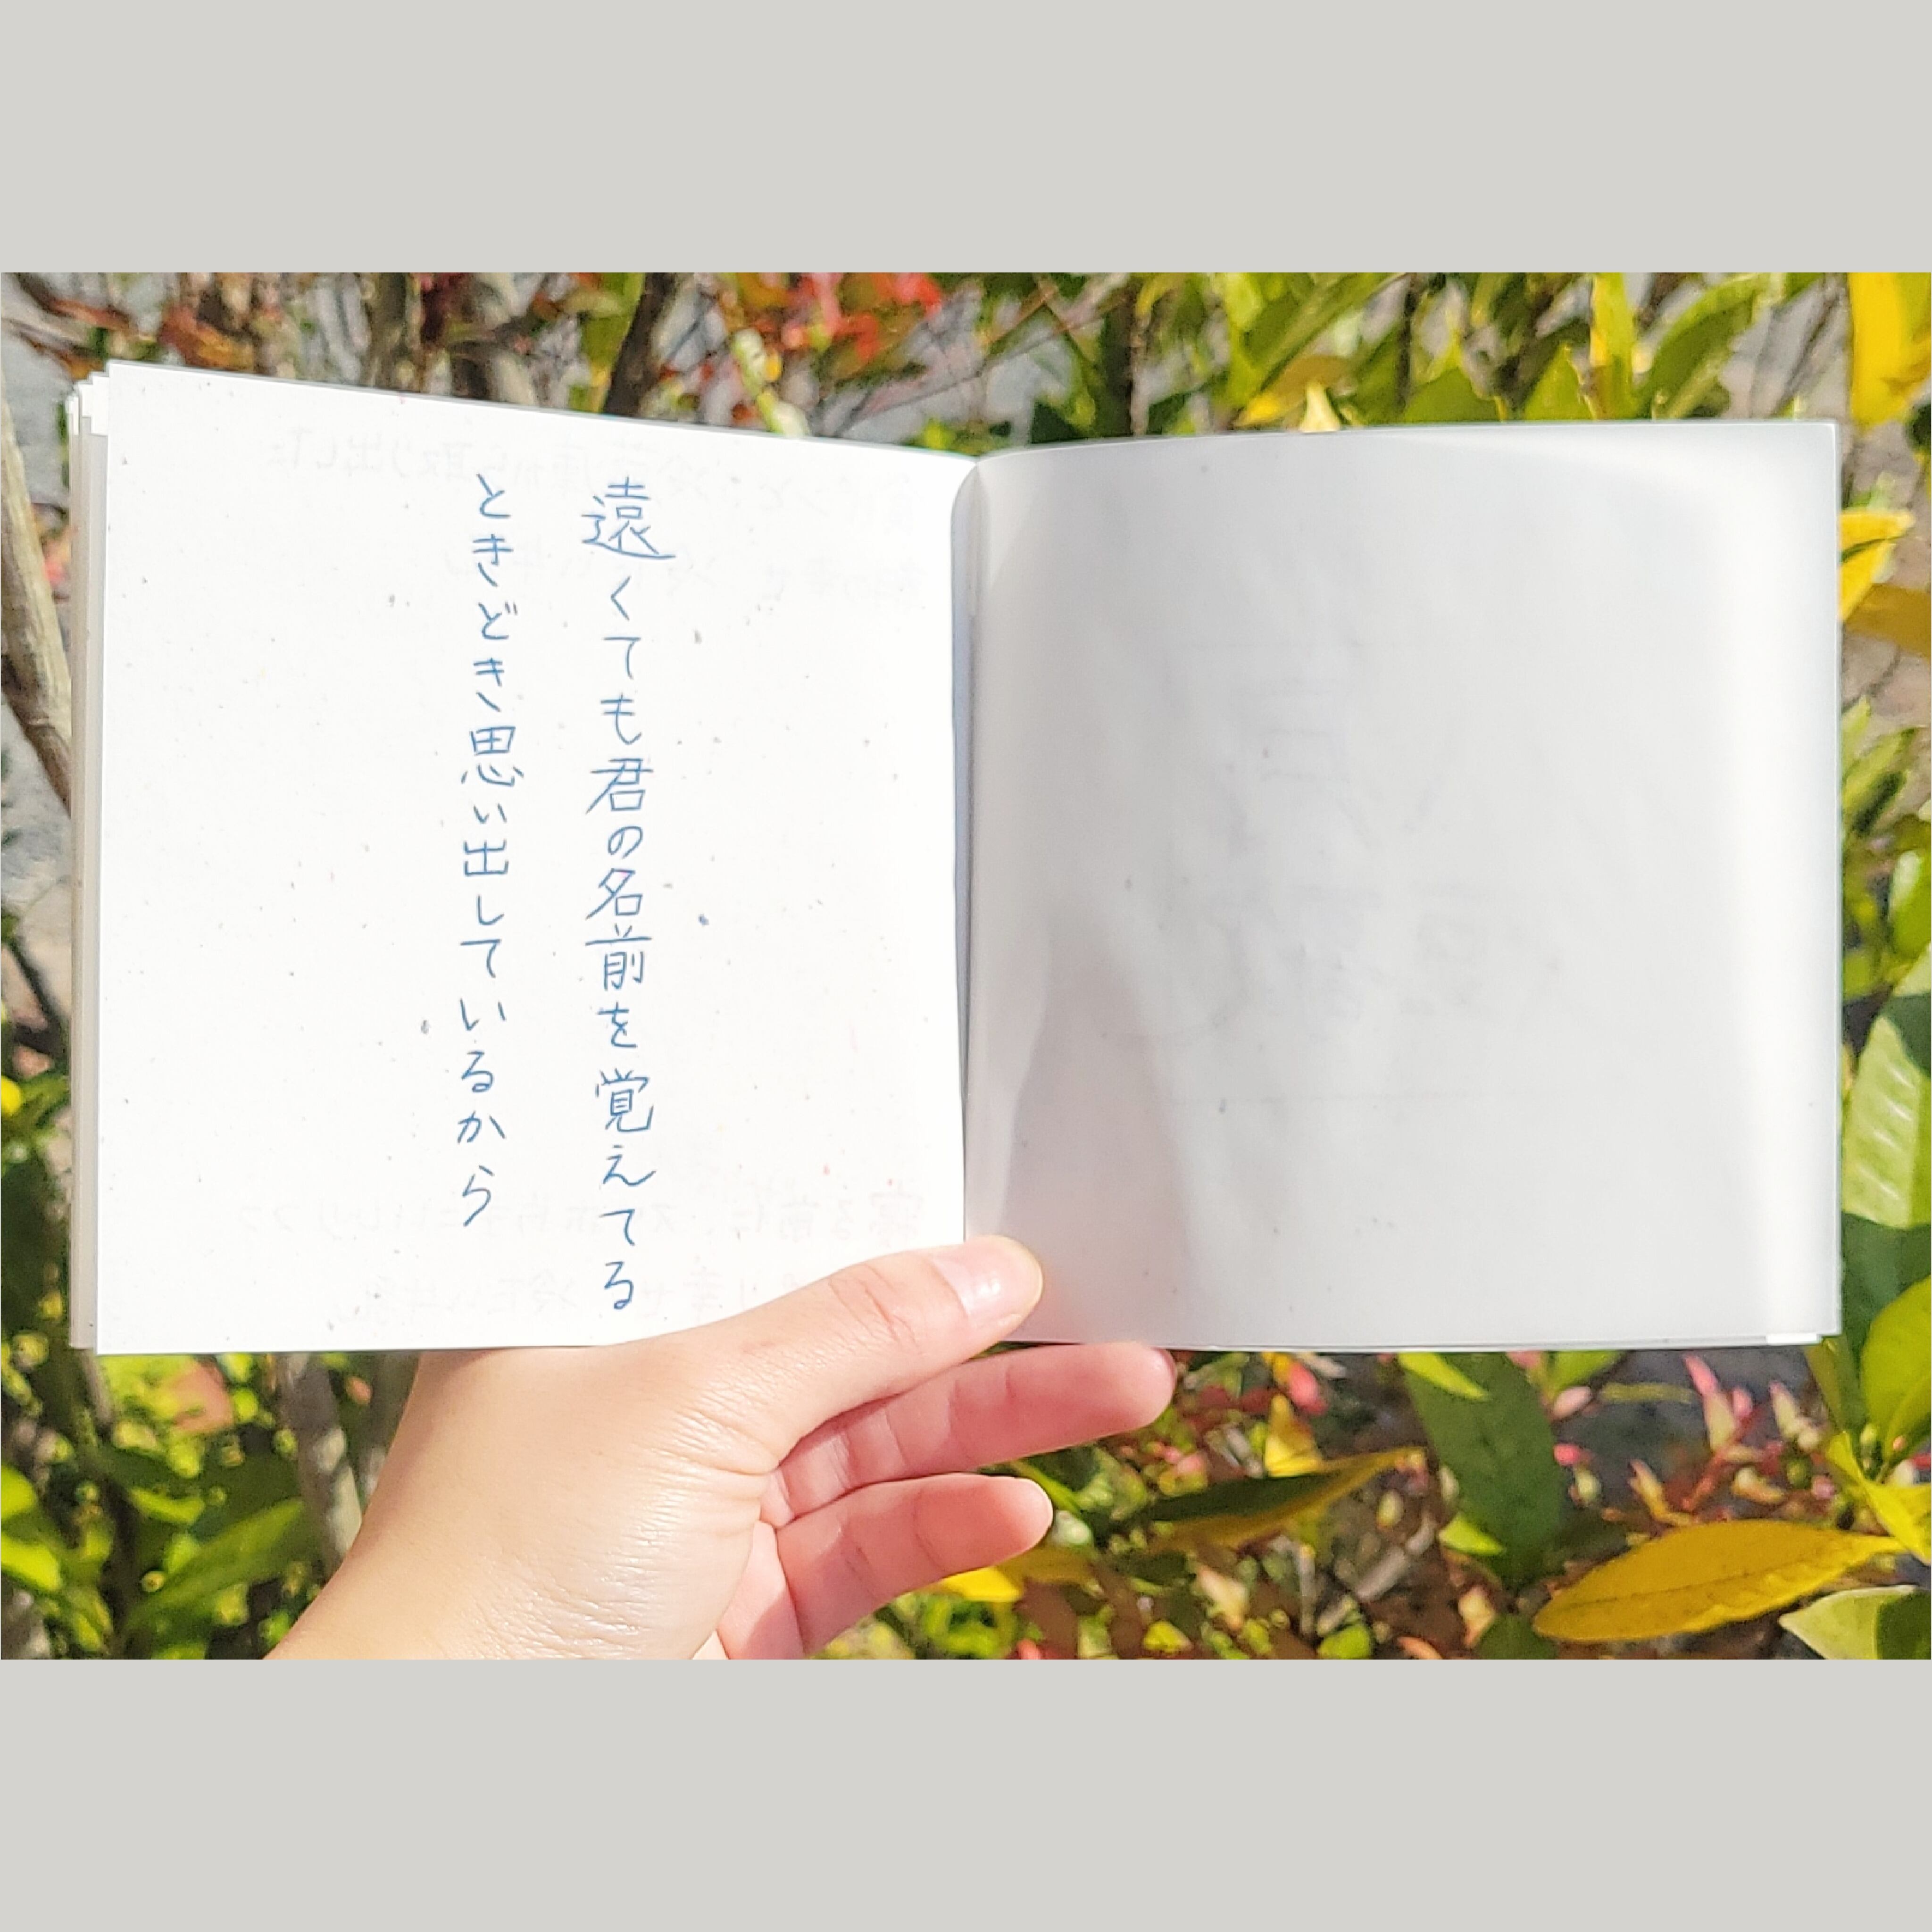 遠くても君の名前を覚えてる
ときどき思い出しているから